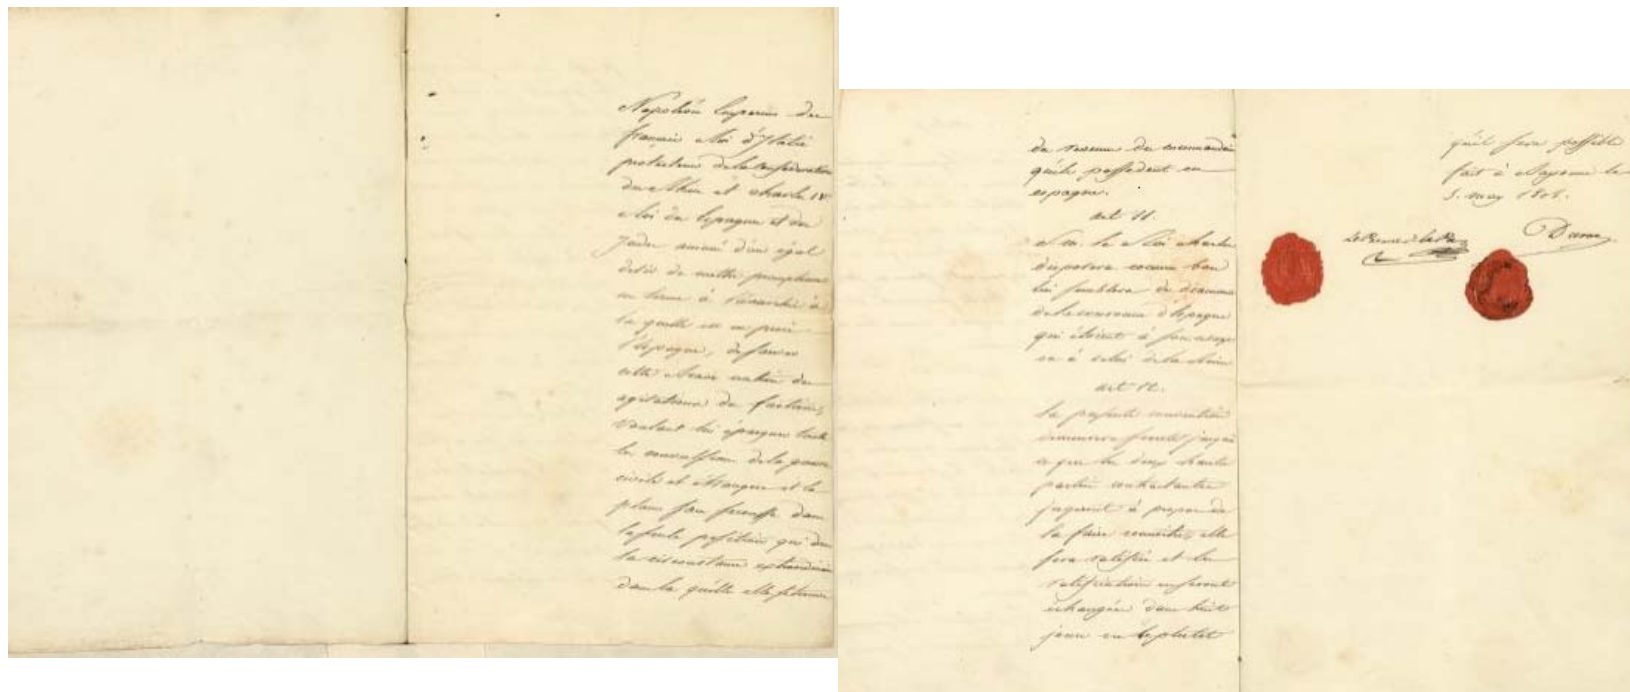 Napoléon Empereur des
français Roi d'Italie
protecteur de la confédération
du Rhin et Charles IV
Roi des Espagnes et des
Indes animés d'un égal
désir de mettre promptement
un terme à l'anarchie à
la quelle est en proie
l'Espagne, de sauver
cette brave nation des
agitations des factions,
voulant lui épargner toutes
les convulsions de la guerre
civile et étrangère et la
placer sans secousse dans
la seule position qui dans
la circonstance extraordinaire
dans la quelle elle se trouve
de revenu des commanderies
qu'ils possedent en
espagne.
art 11.
S. M. le Roi Charles
disposera comme bon
lui semblera des diamans
de la couronne d'Espagne
qui étoient à son usage
ou à celui de la Reine
art 12.
la présente convention
demeurera secrète jusqu'à
ce que les deux hautes
parties contractantes
jugent à propos de
la faire connoitre, elle
sera ratifiée et les
ratifications en seront
échangées dans huit
jours ou le plutot
qu'il sera possible
fait à Bayonne le
5. may 1808.
Le Prince de la Paz
Duroc